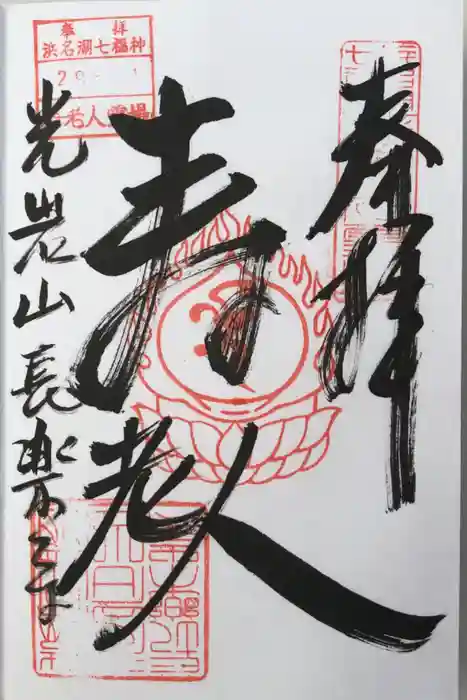 奉拝
寿老人
光岩山長楽寺
奉拝
浜名湖七福神
29 1
寿老人霊場
長楽寺